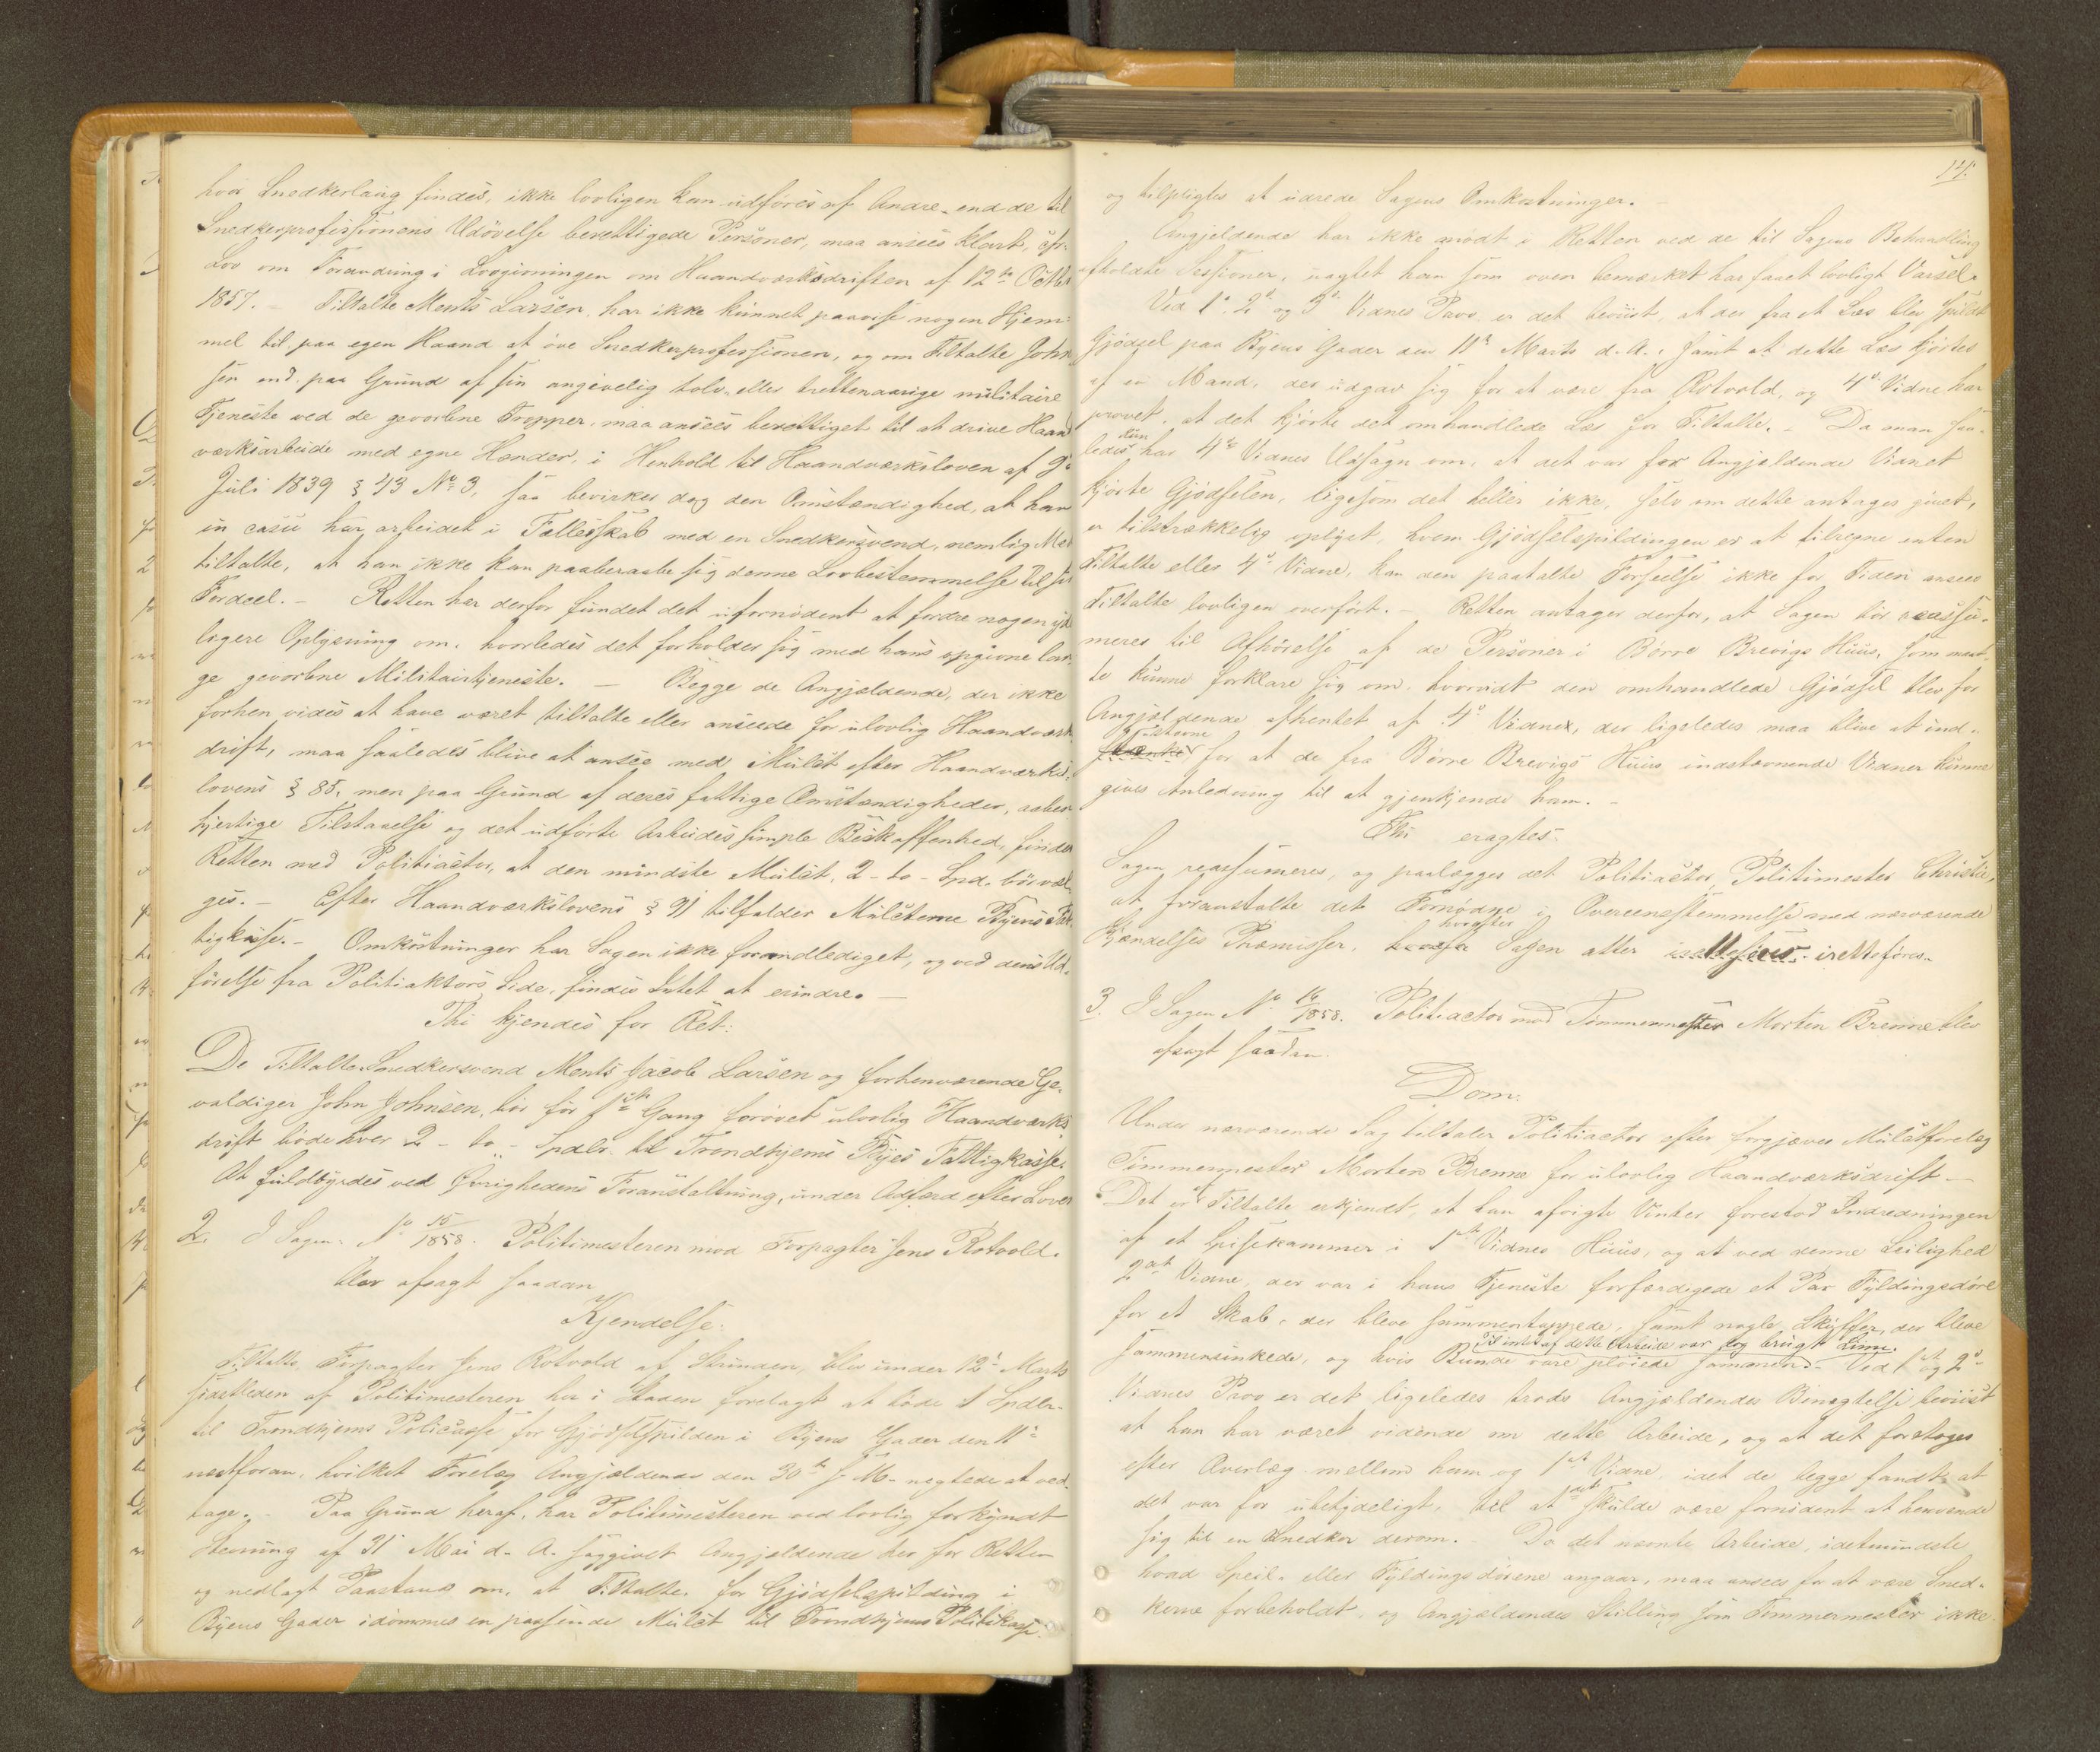 hvor Snedkerlaug findes, ikke lovligen kan udføres af Andre, end de til
Snedkerprofessionens Udøvelse berettigede Personer, maa ansees klart, cfr.
Lov om Forandring i Lovgivningen om Haandværksdriften af 12te Octbr
1857. – Tiltalte Ments Larsen, har ikke kunnet paavise nogen Hjem-
mel til paa egen Haand at øve Snedkerprofessionen, og om Tiltalte John
sen end paa Grund af sin angivelig tolv- eller trettenaarige militaire
Tjeneste ved de gevorbne Tropper, maa ansees berettiget til at drive Haand
værksarbeide med egne Hænder, i Henhold til Haandværksloven af
Juli 1839 § 43 No 3, saa bevirker dog den Omstændighed, at han
in casu har arbeidet i Fællesskab med en Snedkersvend, nemlig Med
tiltalte, at han ikke kan paaberaabe sig denne Lovbestemmelse til sin
Fordeel. – Retten har derfor fundet det ufornødent at fordre nogen yder
ligere Oplysning om, hvorledes det forholder sig med hans opgivne lan-
ge gevorbne Militairtjeneste. – Begge de Angjældende, der ikke
forhen vides at have været tiltalte eller anseede for ulovlig Haandværks
drift, maa saaledes blive at ansee med Mulct efter Haandværks-
lovens § 85, men paa Grund af deres fattige Omstændigheder, aaben
hjertige Tilstaaelse og det udførte Arbeides simple Beskaffenhed, finder
Retten med Politiactor, at den mindste Mulct, 2 - to - Spd. bør væl-
ges. – Efter Haandværkslovens § 91 tilfalder Mulcterne Byens Fat-
tigkasse. – Omkostninger har Sagen ikke foranlediget, og ved dens Ud-
førelse fra Politiaktors Side, findes Intet at erindre. –
Thi kjendes for Ret:
De Tiltalte Snedkersvend Ments Jacob Larsen og forhenværende Ge-
valdiger John Johnsen, bør for 1ste Gang forøvet ulovlig Haandværks
drift bøde hver 2 - to - Spdlr. til Trondhjems Byes Fattigkasse.
At fuldbyrdes ved Øvrighedens Foranstaltning, under Adfærd efter Loven
2. I Sagen No 15/1858. Politimesteren mod Forpagter Jens Rotvold.
blev afsagt saadan
Kjendelse:
Tiltalte Forpagter Jens Rotvold af Strinden, blev under 12te Marts
sidstleden af Politimesteren her i Staden forelagt at bøde 1 Spdlr.
til Trondhjems Policasse for Gjødselspilden i Byens Gader den 11te
næstforan, hvilket Forelæg Angjældende den 30te s. M. negtede at ved-
tage. – Paa Grund heraf, har Politimesteren ved lovlig forkyndt
Stevning af 31 Mai d. A. saggivet Angjældende her for Retten
og nedlagt Paastand om, at Tiltalte for Gjødselspilding i
Byens Gader idømmes en passende Mulct til Trondhjems Politikasse
14.
og tilpligtes at udrede Sagens Omkostninger. –
Angjeldende har ikke mødt i Retten ved de til Sagens Behandling
afholdte Sessioner, uagtet han som oven bemærket har faaet lovligt Varsel.
Ved 1s, 2s og 3s Vidnes Prov er det beviist, at der fra et Læs blev spildt
Gjødsel paa Byens Gader den 11te Marts d. A., samt at dette Læs kjørtes
af en Mand, der udgav sig for at være fra Rotvold, og 4s Vidne har
provet, at det kjørte det omhandlede Læs for Tiltalte. – Da man saa-
ledes kun har 4s Vidnes Udsagn om, at det var for Angjældende Vidnet
kjørte Gjødselen, ligesom det heller ikke, selv om dette antages givet,
er tilstrækkelig oplyst, hvem Gjødselspildingen er at tilregne enten
Tiltalte eller 4s Vidne, kan den paatalte Forseelse ikke for Tiden ansees
Tiltalte lovligen overført. – Retten antager derfor, at Sagen bør reassu-
meres til Afhørelse af de Personer i Børre Brevigs Huus, som maat-
te kunne forklare sig om, hvorvidt den omhandlede Gjødsel blev for
Angjældende afhentet af 4s Vidne, der ligeledes maa blive at ind-
stævne for at de fra Børre Brevigs Huus indstævnende Vidner kunne
gives Anledning til at gjenkjende ham. –
Thi eragtes:
Sagen reassumeres, og paalægges det Politiactor, Politimester Christie,
at foranstalte det Fornødne i Overeensstemmelse med nærværende
Kjendelses Præmisser, hvorefter Sagen atter irettesføres.
3. I Sagen No 16/1858. Politiactor mod Tømmermester Morten Brenne blev
afsagt saadan
Dom:
Under nærværende Sag tiltaler Politiactor efter forgjæves Mulctforelæg
Tømmermester Morten Brenne for ulovlig Haandværksdrift –
Det er af Tiltalte erkjendt, at han afvigte Vinter forestod Indredningen
af et Spisekammer i 1ste Vidnes Huus, og at ved denne Leilighed
2det Vidne, der var i hans Tjeneste forfærdigede et Par Fyldingsdøre
for et Skab, der bleve sammentappede, samt nogle Skuffer, der bleve
sammensinkede, og hvis Bunde vare pløiede sammen. Til intet af dette Arbeide var dog brugt Liim. Ved 1st og 2d
Vidnes Prov er det ligeledes trods Angjældendes Benegtelse beviist
at han har været vidende om dette Arbeide, og at det foretoges
efter Overlæg mellem ham og 1ste Vidne, idet de begge fandt at
det var for ubetydeligt, til at det skulde være fornødent at henvende
sig til en Snedker derom. – Da det nævnte Arbeide, idetmindste
hvad Speil- eller Fyldingsdørene angaar, maa ansees for at være Sned-
kerne forbeholdt, og Angjældendes Stilling som Tømmermester ikke